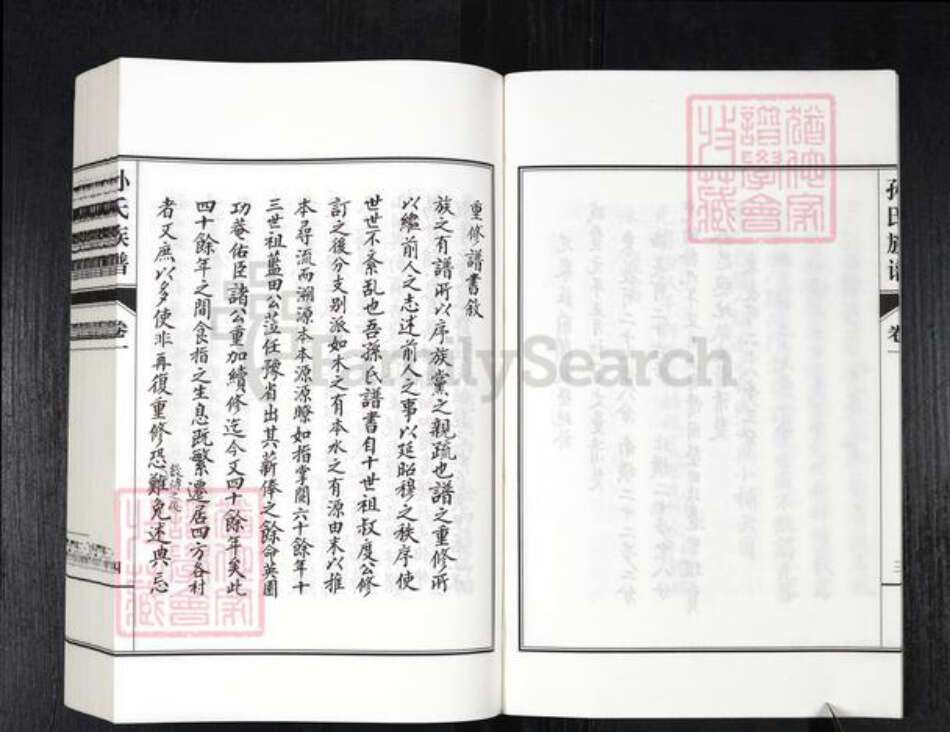 孙氏族谱
卷一
三
重修譜書敘
族之有譜所以序族黨之親疏也譜之重修所
以繼前人之志述前人之事以延昭穆之秩序使
世世不紊乱也吾孫氏譜書自十世祖叔度公修
訂之後分支别派如木之有本水之有源由末以推
本尋流而溯源本本源源瞭如指掌閱六十餘年十
三世祖藍田公蒞任豫省出其薪俸之餘命英圃
功菴佑臣諸公重加續修迄今又四十餘年矣此
四十餘年之間食指之生息既繁遷居四方各村
者又庶以多使非再復重修恐難免述典忘
数傳之後
孙氏族谱
卷一
四
FamilySearch
譜學會
收藏